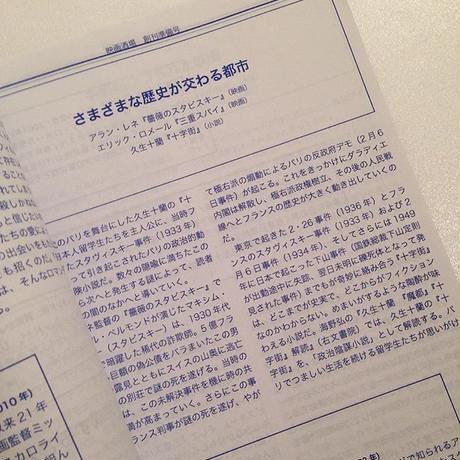 映画酒場 創刊準備号
さまざまな歴史が交わる都市
アラン・レネ『薔薇のスタビスキー』(映画)
エリック・ロメール『三重スパイ』(映画)
久生十蘭『十字街』(小説)
のパリを舞台にした久生十蘭の『十
本人留学生たちを主人公に、当時フ
たスタヴィスキー事件(1933年)
って引き起こされたパリの政治的動
映小説だ。数々の陰謀に満ちたこの
ら次へと発生する謎によって、読者
の闇のなかへと導いていく。
ネ監督の『薔薇のスタビスキー』で
ル・ベルモンドが演じた
は、1930年代
暗躍した稀代の詐欺師。5億フラ
巨額の偽公債をバラまいたこの男
露見とともにスイスの山奥に逃亡
の別荘で謎の死を遂げる。当時の
は、この未解決事件を機に時の共
満が高まっていく。さらにこの事
ランス判事が謎の死を遂げ、やが
て極右派の煽動によるパリの反政府デモ(2月6
日事件)が起こる。これをきっかけにダラディエ
内閣は解散し、極右派政権樹立、その後の人民戦
線へとフランスの歴史が大きく動き出していくの
だ。
東京で起きた2・26事件(1936年)とフラ
ンスのスタヴィスキー事件(1933年)および2
月6日事件(1934年)、そしてさらには1949
年に日本で起こった下山事件(国鉄総裁下山定則
が出勤途中に失踪、翌日未明に轢死体となって発
見された事件)までもが奇妙に絡み合う『十字街』
は、どこまでが史実で、どこからがフィクション
なのかわからない。めまいがするような陶酔が味
わえる小説だ。海野弘の『久生十蘭『魔都』『十字
街』解読』(右文書院)では、久生十蘭の『十字
街』を、「政治陰謀小説」として解読する。パ
リでつましい生活を続ける留学生たちが思いがけ
も招くのだ。
は、そんなロマ
010年)
以来21年
画監督ミッ
カロライ
で知られるア